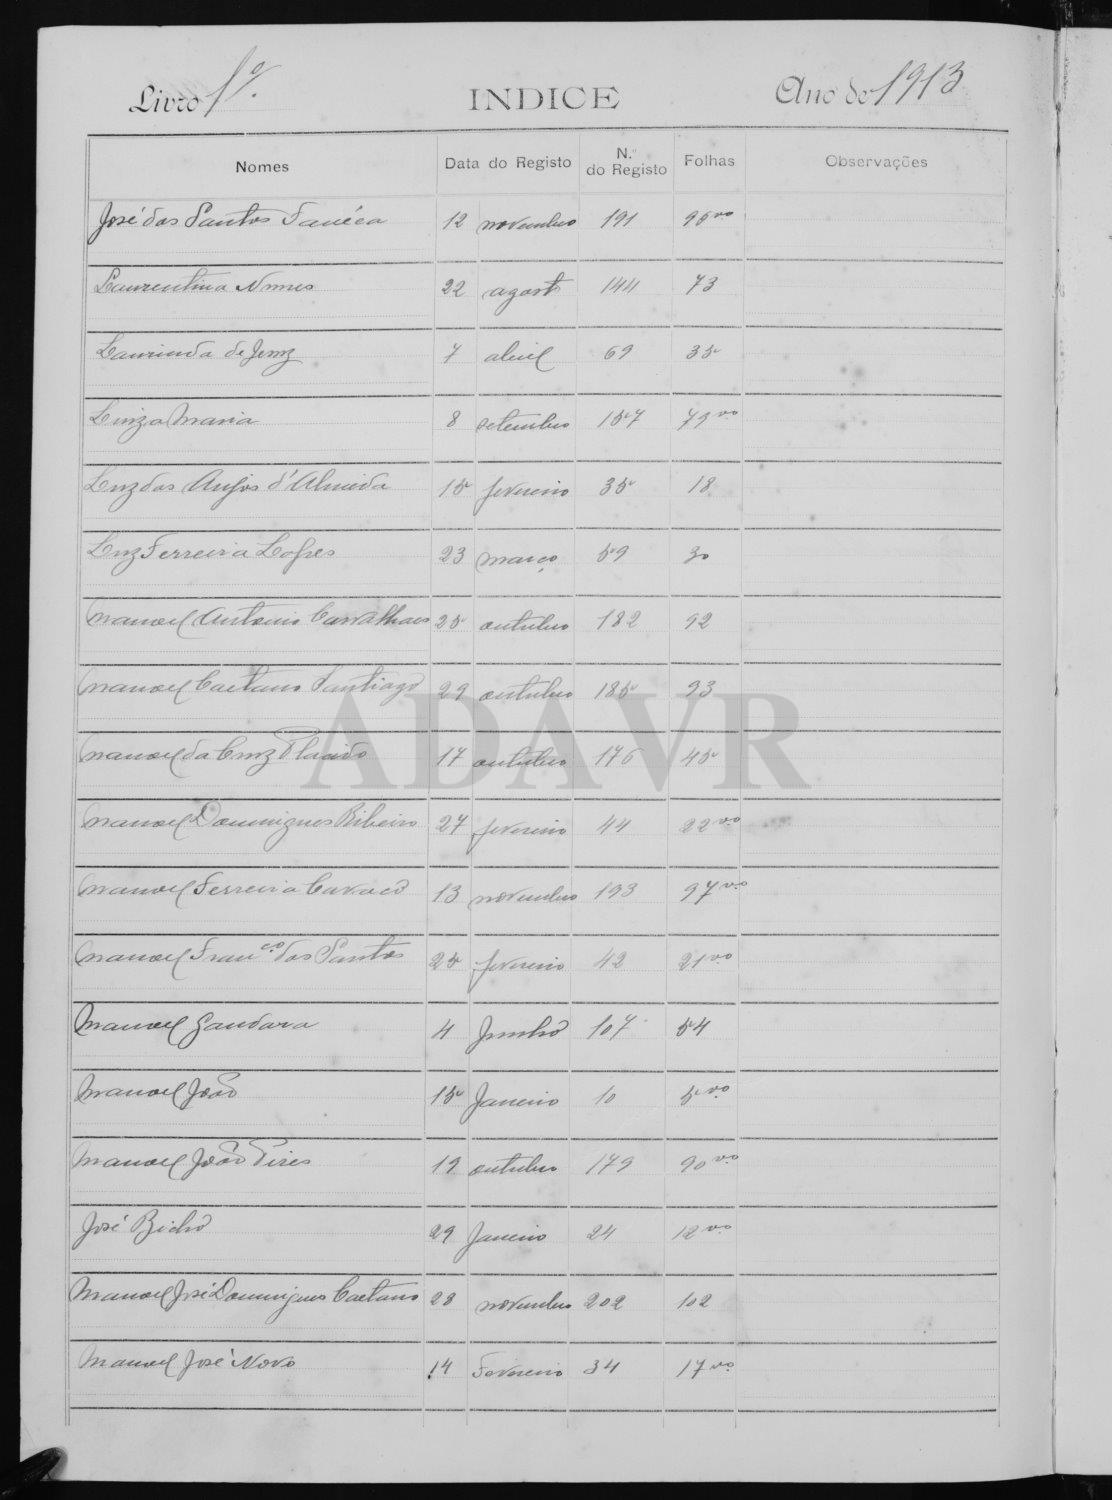 Livro 1º. INDICE Ano de 1913
Nomes Data do Registo N.º do Registo Folhas Observações
José dos Santos 12 novembro 191 96 vº
Laurentina Nunes 22 agosto 144 73
Laurinda de Jesus 7 abril 69 35
Luiza Maria 8 setembro 157 79 vº
Luz dos Anjos d'Almeida 15 fevereiro 35 18
Luz Ferreira Lopes 23 março 59 30
Manoel Antonio Carvalhaes 25 outubro 182 92
Manoel Caetano Santiago 29 outubro 185 93
Manoel da Cruz Placido 17 outubro 176 45
Manoel Domingues Ribeiro 27 fevereiro 44 22 vº
Manoel Ferreira Cavaco 13 novembro 193 97 vº
Manoel Fran.co dos Santos 25 fevereiro 42 21 vº
Manoel Gandara 4 Junho 107 54
Manoel João 15 Janeiro 10 5 vº
Manoel João Pires 19 outubro 179 90 vº
José Bicho 29 Janeiro 24 12 vº
Manoel José Domingues Caetano 28 novembro 202 102
Manoel José Novo 14 Fevereiro 34 17 vº
ADAVR